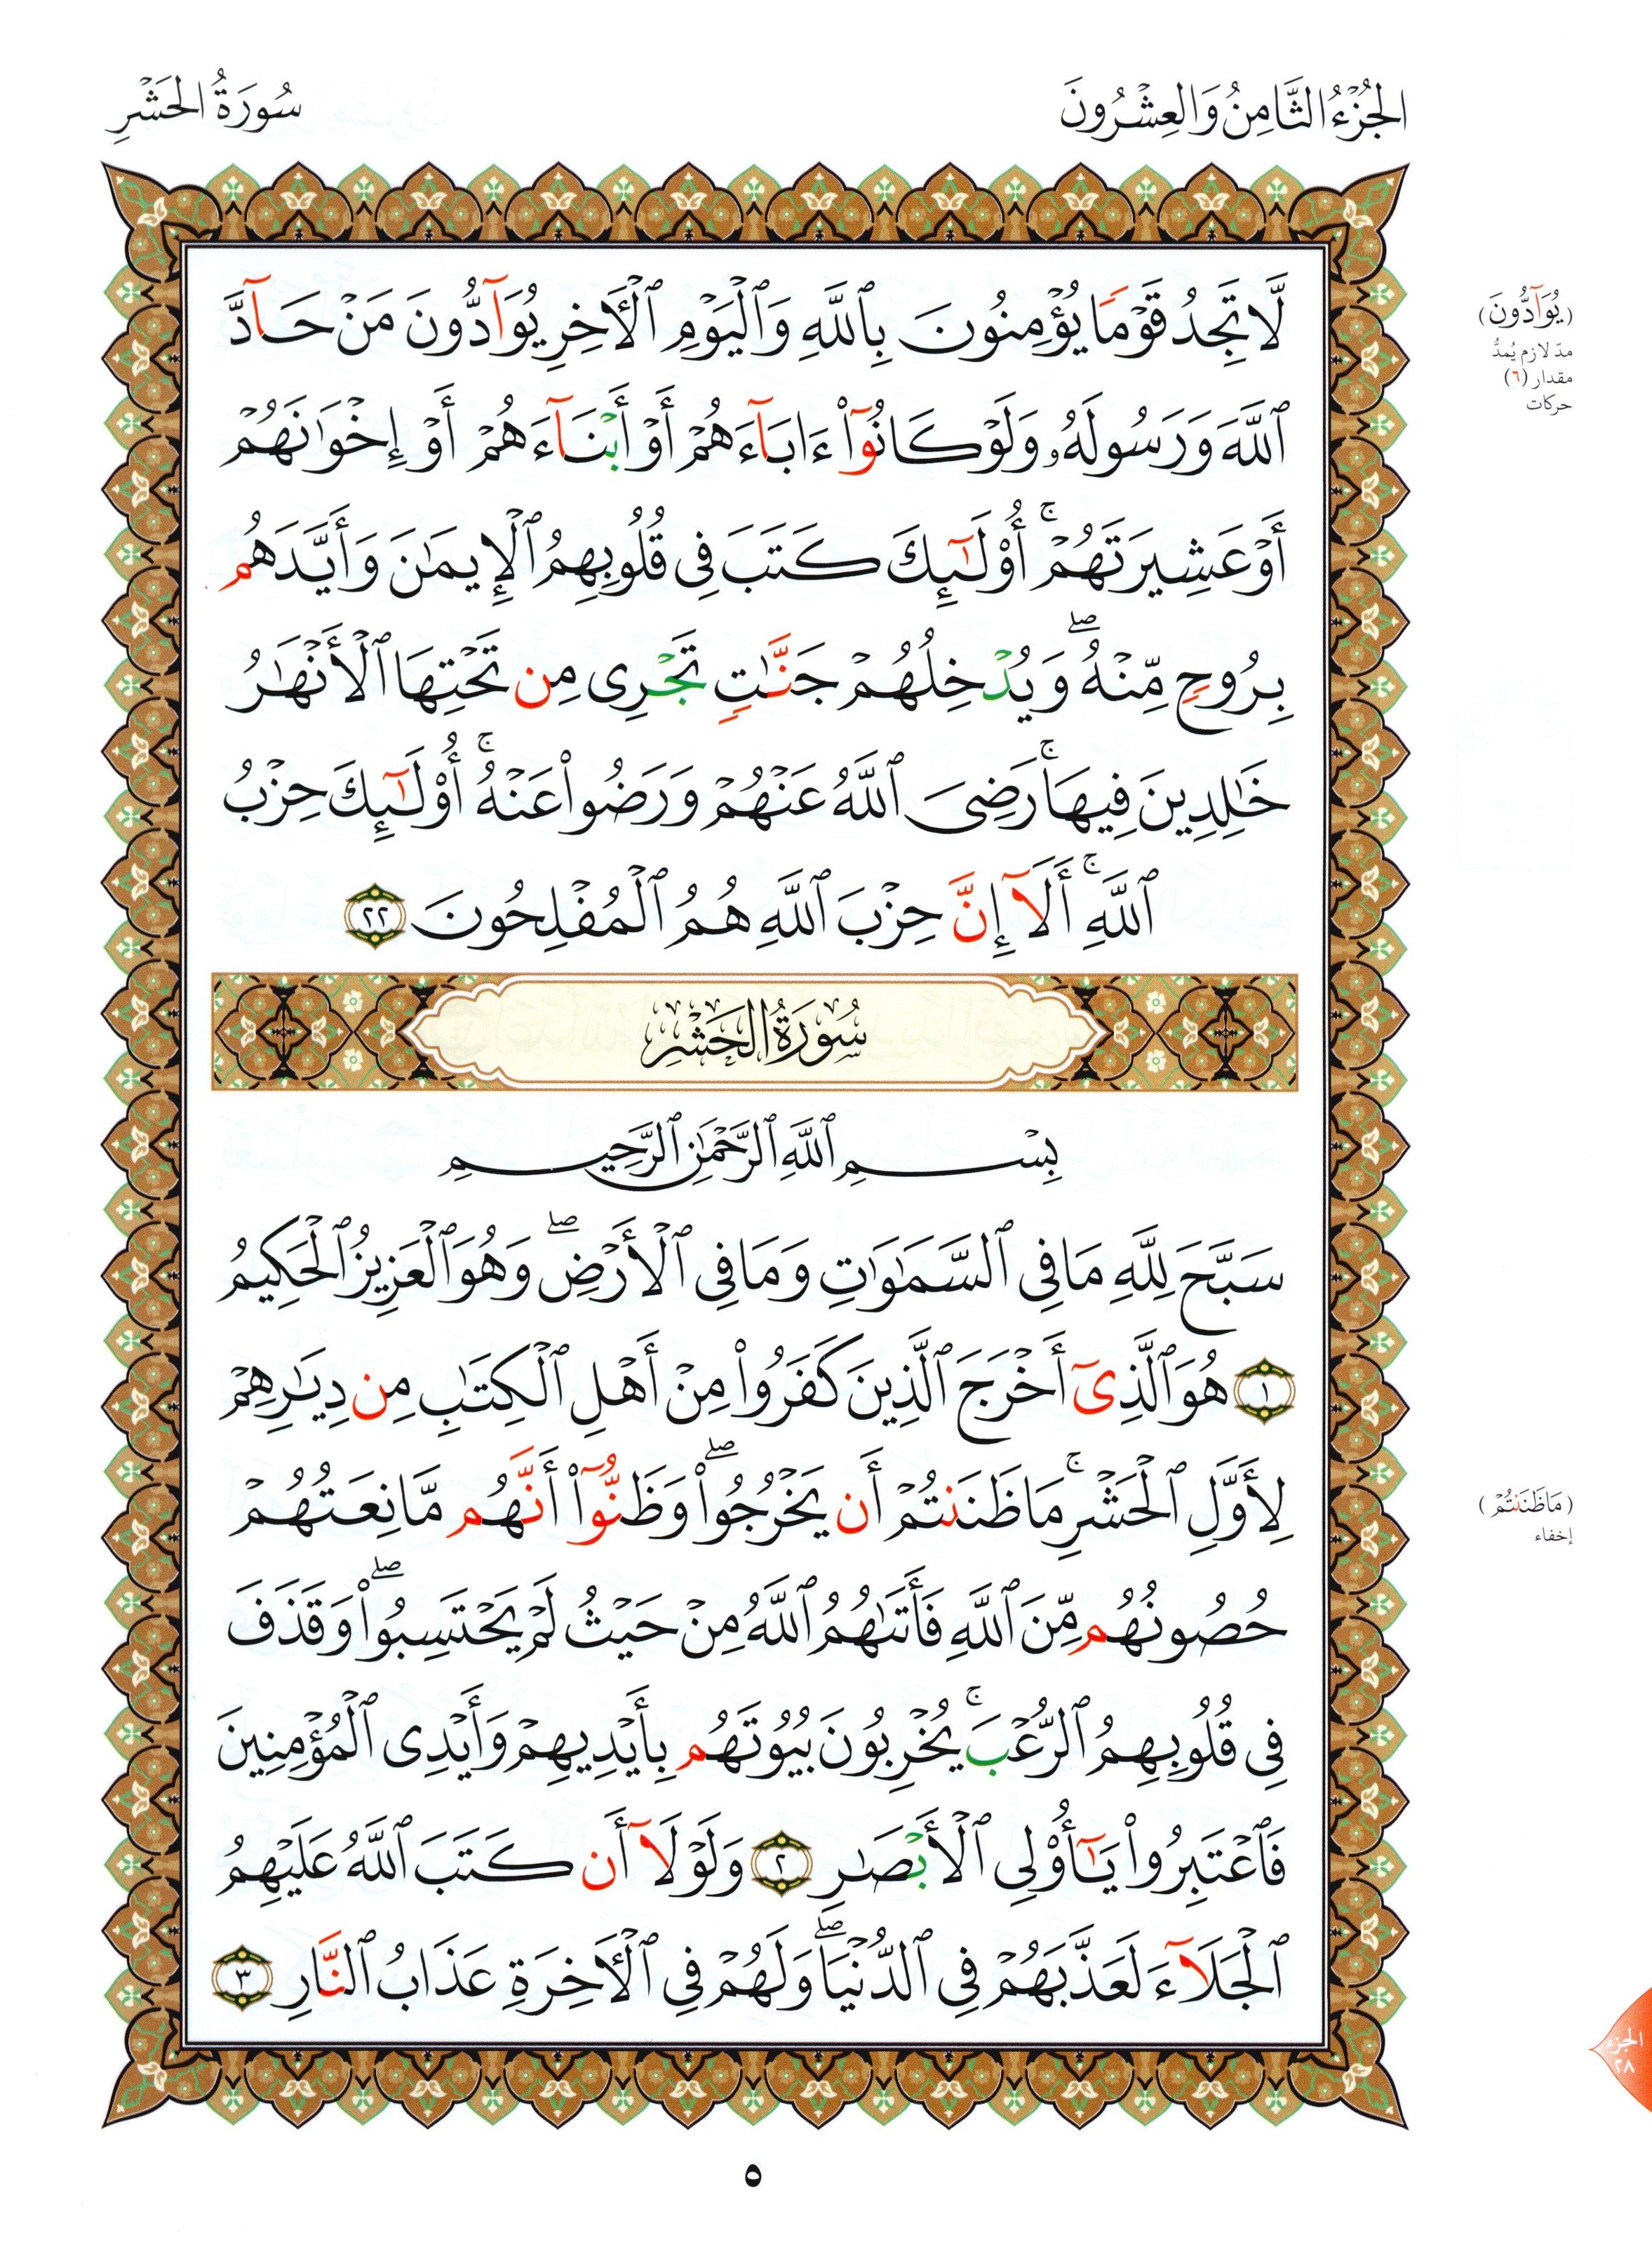 الجُزْءُ الثَّامِنُ وَالعِشْرُونَ
سُورَةُ الحَشْرِ
لَّا تَجِدُ قَوْمًا يُؤْمِنُونَ بِٱللَّهِ وَٱلْيَوْمِ ٱلْأَخِرِ يُوَآدُّونَ مَنْ حَآدَّ
ٱللَّهَ وَرَسُولَهُۥ وَلَوْ كَانُوٓا۟ ءَابَآءَهُمْ أَوْ أَبْنَآءَهُمْ أَوْ إِخْوَٰنَهُمْ
أَوْ عَشِيرَتَهُمْ ۚ أُو۟لَـٰٓئِكَ كَتَبَ فِى قُلُوبِهِمُ ٱلْإِيمَـٰنَ وَأَيَّدَهُم
بِرُوحٍ مِّنْهُ ۖ وَيُدْخِلُهُمْ جَنَّـٰتٍ تَجْرِى مِن تَحْتِهَا ٱلْأَنْهَـٰرُ
خَـٰلِدِينَ فِيهَا ۚ رَضِىَ ٱللَّهُ عَنْهُمْ وَرَضُوا۟ عَنْهُ ۚ أُو۟لَـٰٓئِكَ حِزْبُ
ٱللَّهِ ۚ أَلَآ إِنَّ حِزْبَ ٱللَّهِ هُمُ ٱلْمُفْلِحُونَ ٢٢
سُورَةُ الحَشْرِ
بِسْمِ ٱللَّهِ ٱلرَّحْمَـٰنِ ٱلرَّحِيمِ
سَبَّحَ لِلَّهِ مَا فِى ٱلسَّمَـٰوَٰتِ وَمَا فِى ٱلْأَرْضِ ۖ وَهُوَ ٱلْعَزِيزُ ٱلْحَكِيمُ
١ هُوَ ٱلَّذِىٓ أَخْرَجَ ٱلَّذِينَ كَفَرُوا۟ مِنْ أَهْلِ ٱلْكِتَـٰبِ مِن دِيَـٰرِهِمْ
لِأَوَّلِ ٱلْحَشْرِ ۚ مَا ظَنَنتُمْ أَن يَخْرُجُوا۟ ۖ وَظَنُّوٓا۟ أَنَّهُم مَّانِعَتُهُمْ
حُصُونُهُم مِّنَ ٱللَّهِ فَأَتَىٰهُمُ ٱللَّهُ مِنْ حَيْثُ لَمْ يَحْتَسِبُوا۟ ۖ وَقَذَفَ
فِى قُلُوبِهِمُ ٱلرُّعْبَ ۚ يُخْرِبُونَ بُيُوتَهُم بِأَيْدِيهِمْ وَأَيْدِى ٱلْمُؤْمِنِينَ
فَٱعْتَبِرُوا۟ يَـٰٓأُو۟لِى ٱلْأَبْصَـٰرِ ٢ وَلَوْلَآ أَن كَتَبَ ٱللَّهُ عَلَيْهِمُ
ٱلْجَلَآءَ لَعَذَّبَهُمْ فِى ٱلدُّنْيَا ۖ وَلَهُمْ فِى ٱلْأَخِرَةِ عَذَابُ ٱلنَّارِ ٣
(يُوَآدُّونَ)
مدّ لازم يُمدُّ
مقدار (٦)
حركات
(مَا ظَنَنتُمْ)
إخفاء
الجزء
٢٨
٥